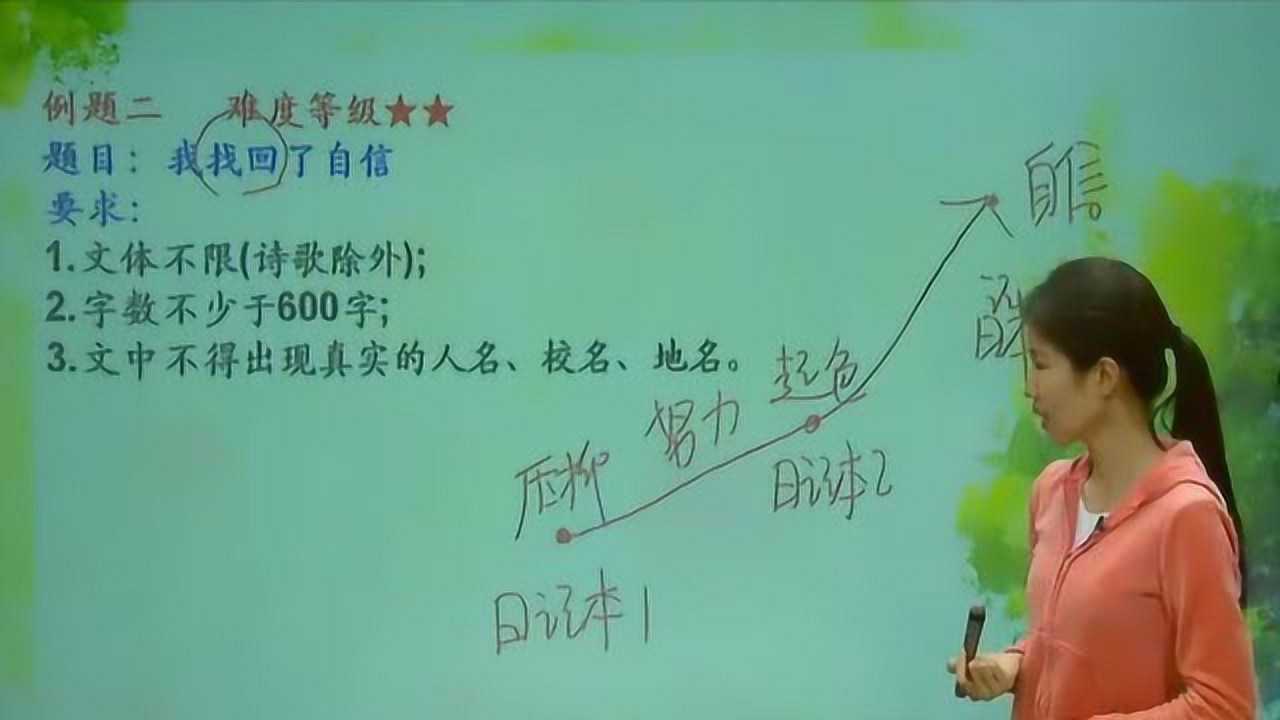 例题二 难度等级★★
题目：我找回了自信
要求：
1.文体不限(诗歌除外);
2.字数不少于600字;
3.文中不得出现真实的人名、校名、地名。
自信
起色
努力
日记本2
日记本1